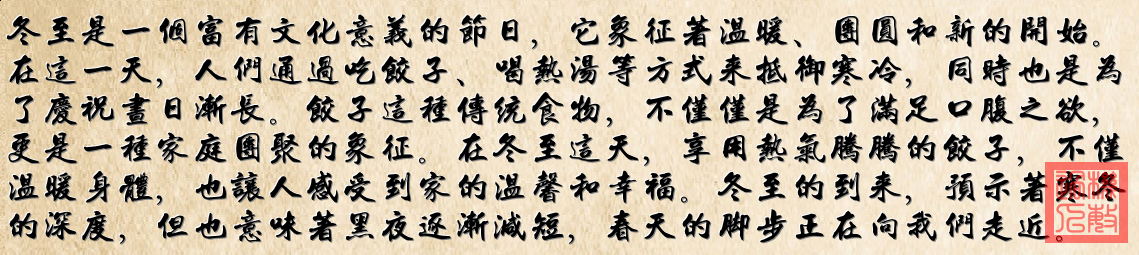 冬至是一個富有文化意義的節日，它象征著溫暖、團圓和新的開始。
在這一天，人們通過吃餃子、喝熱湯等方式來抵御寒冷，同時也是為
了慶祝晝日漸長。餃子這種傳統食物，不僅僅是為了滿足口腹之欲，
更是一種家庭團聚的象征。在冬至這天，享用熱氣騰騰的餃子，不僅
溫暖身體，也讓人感受到家的溫馨和幸福。冬至的到來，預示著寒冬
的深度，但也意味著黑夜逐漸減短，春天的腳步正在向我們走近。